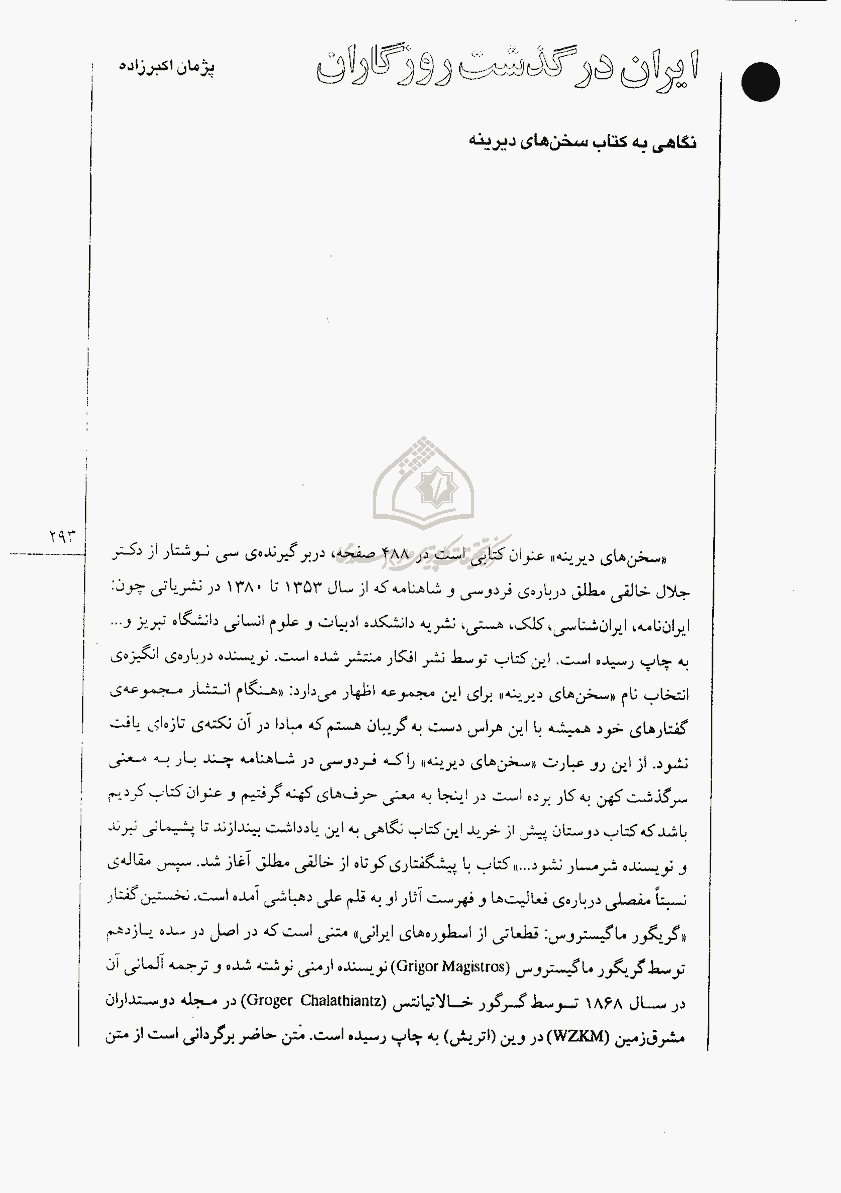 ایران در گذشت روزگاران
پژمان اکبرزاده
نگاهی به کتاب سخن‌های دیرینه
۲۹۳
«سخن‌های دیرینه» عنوان کتابی است در ۴۸۸ صفحه، دربرگیرنده‌ی سی نوشتار از دکتر
جلال خالقی مطلق درباره‌ی فردوسی و شاهنامه که از سال ۱۳۵۳ تا ۱۳۸۰ در نشریاتی چون:
ایران‌نامه، ایران‌شناسی، کلک، هستی، نشریه دانشکده ادبیات و علوم انسانی دانشگاه تبریز و...
به چاپ رسیده است. این کتاب توسط نشر افکار منتشر شده است. نویسنده درباره‌ی انگیزه‌ی
انتخاب نام «سخن‌های دیرینه» برای این مجموعه اظهار می‌دارد: «هنگام انتشار مجموعه‌ی
گفتارهای خود همیشه با این هراس دست به گریبان هستم که مبادا در آن نکته‌ی تازه‌ای یافت
نشود. از این رو عبارت «سخن‌های دیرینه» را که فردوسی در شاهنامه چند بار به معنی
سرگذشت کهن به کار برده است در اینجا به معنی حرف‌های کهنه گرفتیم و عنوان کتاب کردیم
باشد که کتاب دوستان پیش از خرید این کتاب نگاهی به این یادداشت بیندازند تا پشیمانی نبرند
و نویسنده شرمسار نشود...» کتاب با پیشگفتاری کوتاه از خالقی مطلق آغاز شد. سپس مقاله‌ی
نسبتاً مفصلی درباره‌ی فعالیت‌ها و فهرست آثار او به قلم علی دهباشی آمده است. نخستین گفتار
«گریگور ماگیستروس: قطعاتی از اسطوره‌های ایرانی» متنی است که در اصل در سده یازدهم
توسط گریگور ماگیستروس (Grigor Magistros) نویسنده ارمنی نوشته شده و ترجمه آلمانی آن
در سال ۱۸۶۸ توسط گرگور خالاتیانتس (Groger Chalathiantz) در مجله دوستداران
مشرق‌زمین (WZKM) در وین (اتریش) به چاپ رسیده است. متن حاضر برگردانی است از متن